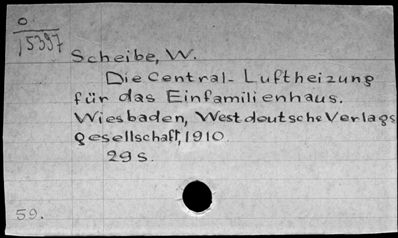 O
15397
Scheibe, W.
Die Central-Luftheizung
für das Einfamilienhaus.
Wiesbaden, Westdeutsche Verlags
gesellschaft, 1910
29 s.
59.